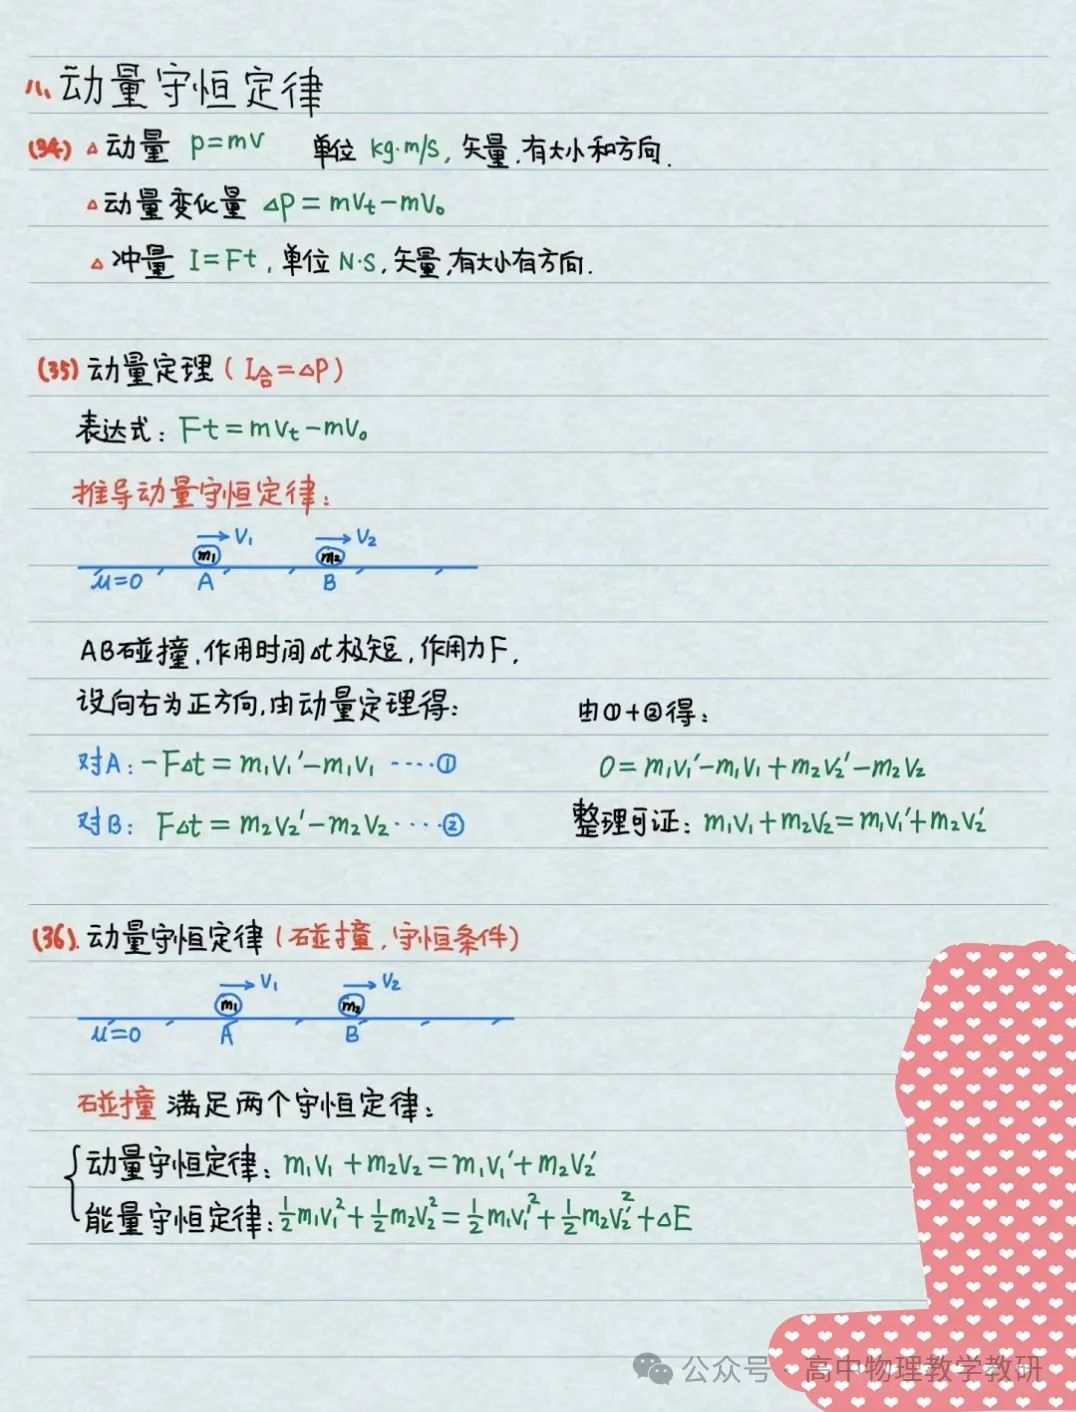 八、动量守恒定律
(34) △动量 p=mv 单位 kg·m/s, 矢量,有大小和方向.
△动量变化量 △p=mvₜ-mv₀
△冲量 I=Ft, 单位 N·S, 矢量,有大小有方向.
(35) 动量定理 (I合=△P)
表达式: Ft=mvₜ-mv₀
推导动量守恒定律:
V₁ V₂
m₁ m₂
μ=0 A B
AB碰撞,作用时间△t极短,作用力F,
设向右为正方向,由动量定理得:
对A: -F△t=m₁v₁′-m₁v₁ ····①
对B: F△t=m₂v₂′-m₂v₂····②
由①+②得:
0=m₁v₁′-m₁v₁+m₂v₂′-m₂v₂
整理可证: m₁v₁+m₂v₂=m₁v₁′+m₂v₂′
(36). 动量守恒定律 (碰撞,守恒条件)
V₁ V₂
m₁ m₂
μ=0 A B
碰撞 满足两个守恒定律:
动量守恒定律: m₁v₁+m₂v₂=m₁v₁′+m₂v₂′
能量守恒定律: ½m₁v₁²+½m₂v₂²=½m₁v₁′²+½m₂v₂′²+△E
公众号·高中物理教学教研